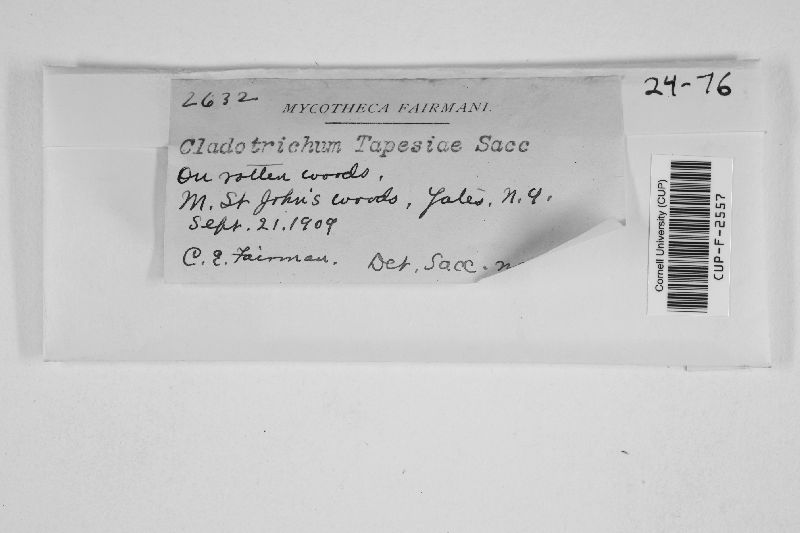 2632
MYCOTHECA FAIRMANI.
Cladotrichum Tapesiae Sacc
On rotten woods,
M. St John's woods, Yates, N.Y.
Sept. 21. 1909
C. E. Fairman. Det. Sacc.
24-76
Cornell University (CUP)
CUP-F-2557